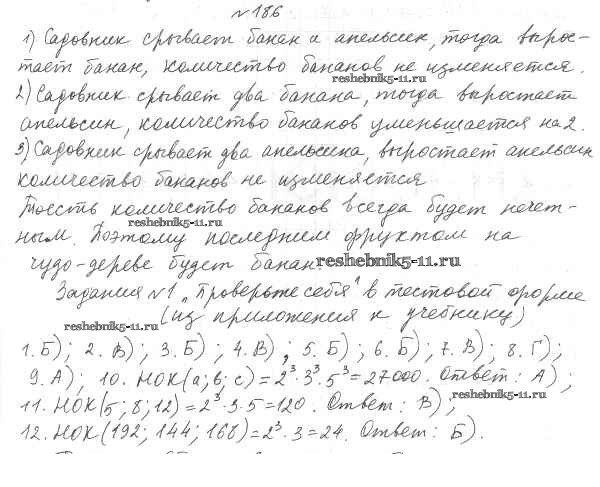 №186
1) Садовник срывает банан и апельсин, тогда вырос-
тает банан, количество бананов не изменяется.
reshebnik5-11.ru
2) Садовник срывает два банана, тогда выростает
апельсин, количество бананов уменьшается на 2.
3) Садовник срывает два апельсина, выростает апельсин
количество бананов не изменяется
Тоесть количество бананов всегда будет нечет-
reshebnik5-11.ru
ным. Поэтому последним фруктом на
чудо-дереве будет банан.
reshebnik5-11.ru
Задания №1 "Проверьте себя" в тестовой форме
reshebnik5-11.ru
(из приложения к учебнику)
1. Б); 2. В); 3. Б); 4. В); 5. Б); 6. Б); 7. В); 8. Г);
9. А); 10. НОК(а; в; с) = 2³ 3³ 5³ = 27000. Ответ: А);
reshebnik5-11.ru
11. НОК(5; 8; 12) = 2³·3·5 = 120. Ответ: В);
12. НОК(192; 144; 168) = 2³·3 = 24. Ответ: Б).